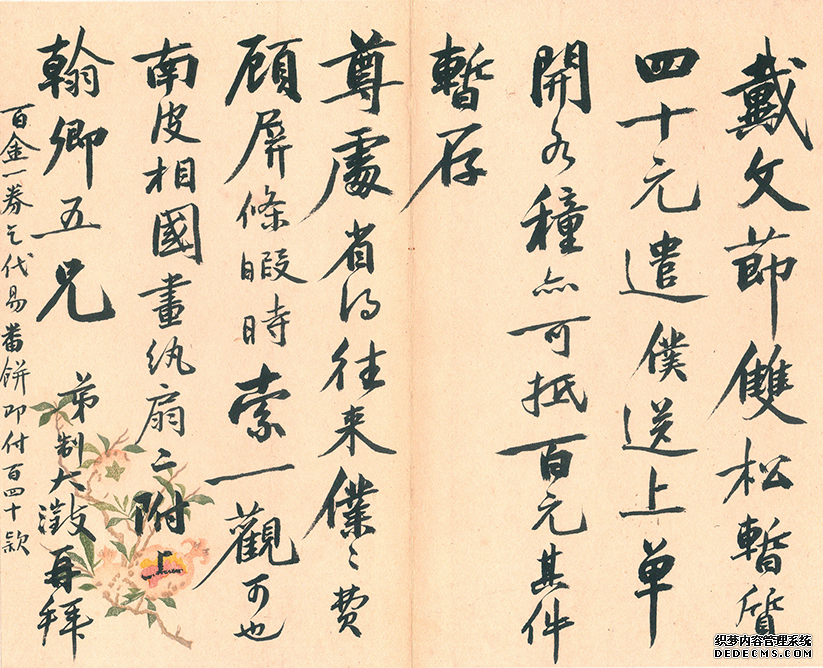 戴文節雙松暫質
四十元遣僕送上單
開各種亦可抵百元其件
暫存
尊處省得往来僕僕之費
顧屏條暇時索一觀可也
南皮相國畫紈扇二附上
翰卿五兄
弟制大澂再拜
百金一券乞代易番餅即付百四十款
织梦内容管理系统
DEDECMS.COM